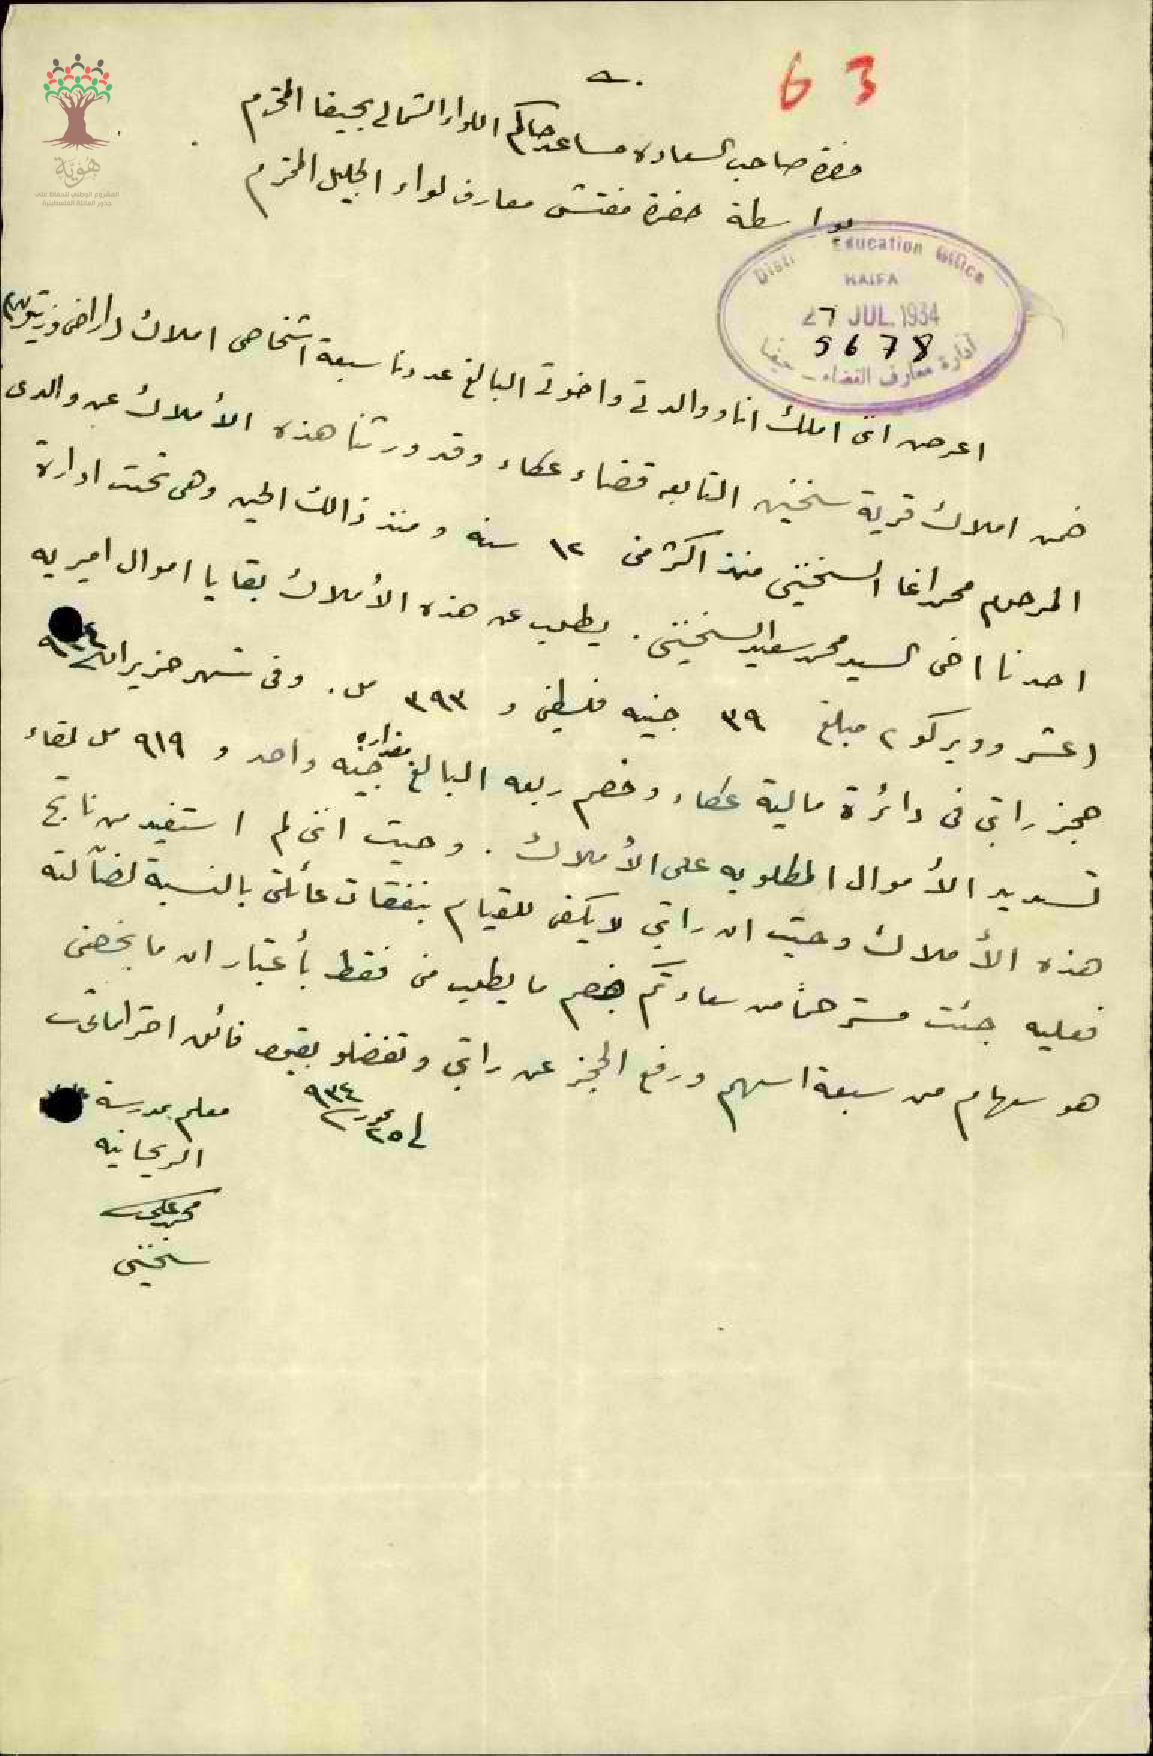 63
حضرة صاحب السعاده مساعد حاكم اللواء الشمالي بحيفا المحترم
بواسطة حضرة مفتش معارف لواء الجليل المحترم
هوية
المشروع الوطني للحفاظ على
جذور العائلة الفلسطينية
Education Office
HAIFA
27 JUL 1934
5678
ادارة معارف القضاء - حيفا
اعرض انني املك انا ووالدتي واخوتي البالغ عددنا سبعة اشخاص املاك واراضي وزيتون
ضمن املاك قرية سخنين التابعه قضاء عكاء وقد ورثنا هذه الأملاك عن والدي
المرحوم محمد اغا السخنيني منذ اكثر من ١٢ سنه ومنذ ذالك الحين وهي تحت ادارة
احدنا اخي السيد محمد سعيد السخنيني . يطلب عن هذه الأملاك بقايا اموال اميريه
اعشر وويركو مبلغ ٣٩ جنيه فلسطيني و ٣٩٣ مل . وفي شهر حزيران ٩٣٤
حجز راتبي في دائرة مالية عكاء وخصم ربعه البالغ مقداره جنيه واحد و ٩١٩ مل لقاء
تسديد الأموال المطلوبه على الأملاك . وحيث انني لم استفيد من ناتج
هذه الأملاك وحيث ان راتبي لا يكفي للقيام بنفقات عائلتي بالنسبة لضآلته
فعليه جئت مسترحماً من سعادتكم بخصم ما يطلب مني فقط بأعتبار ان ما يخصني
هو سهام من سبعة اسهم ورفع الحجز عن راتبي وتفضلو بقبول فائق احتراماتي
في ٢٥ تموز ٩٣٤
معلم مدرسة
الريحانيه
محمد علي
سخنيني